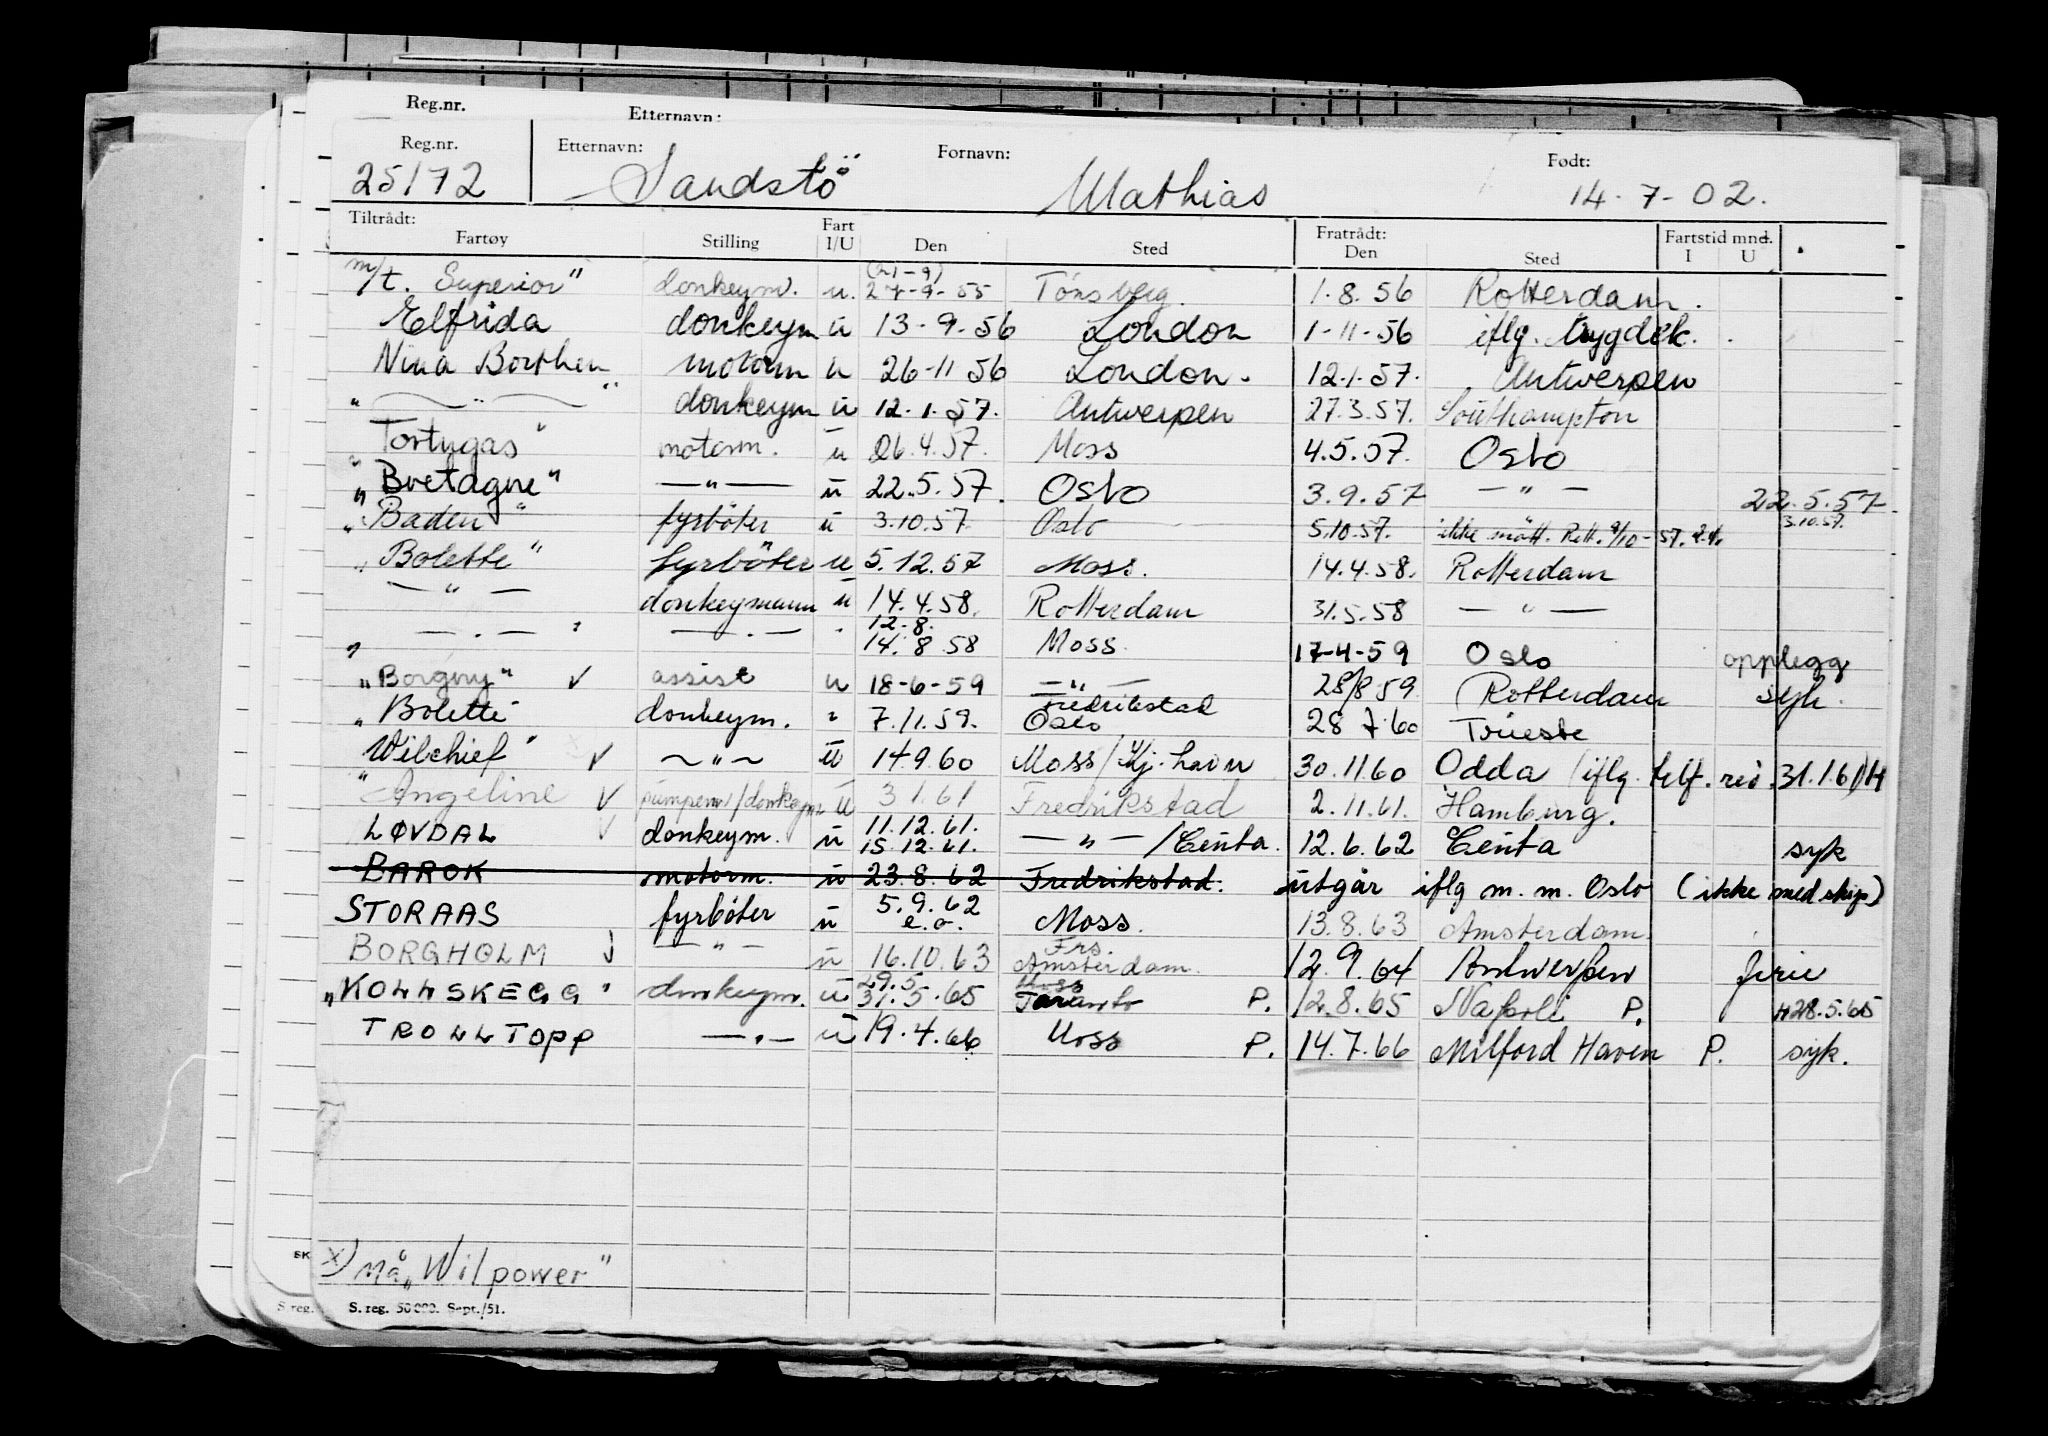 Reg.nr. Etternavn:
Reg.nr. Etternavn: Fornavn: Født:
25172 Sandstö Mathias 14-7-02.
Tiltrådt: Fratrådt: Fartstid mnd.
Fartøy Stilling Fart I/U Den Sted Den Sted I U
m/t. Superior" donkeym. u. (21-9) 27-9-55 Tönsberg. 1.8.56 Rotterdam.
Elfrida donkeym u 13-9-56 London 1-11-56 iflg. trygdek.
Nina Borthen motorm u 26-11 56 London. 12.1.57. Antwerpen
" — " — " donkeym u 12.1.57. Antwerpen 27.3.57. Southampton
"Tortugas" motorm. u 26.4.57. Moss 4.5.57. Oslo
"Bretagne" — " — u 22.5.57. Oslo 3.9.57 — " — 22.5.57
"Baden" fyrböter u 3.10.57. Oslo 5.10.57. ikke mött. Rett. 9/10-57. 3.10.57.
"Bolette" fyrböter u 5.12.57 Moss. 14.4.58. Rotterdam
— " — donkeymann u 14.4.58. Rotterdam 31.5.58 — " —
" — " — " — " — " 12.8. 14.8.58 Moss 17-4-59 Oslo opplegg
"Borgny" ✓ assist u 18-6-59 — " — 28/8 59 Rotterdam syk.
"Bolette" donkeym. " 7.11.59. Fredrikstad Oslo 28 7 60 Trieste
Wilchief" x ✓ ~ " ~ u 14 9.60 Moss/Kj.havn 30.11.60 Odda (iflg. telf. red. 31.1.61)
"Angeline ✓ pumpem/donkeym u 3 1.61 Fredrikstad 2.11.61. Hamburg.
LØVDAL ✓ donkeym. u 11.12.61. 15.12.61. — " — /Ceuta. 12.6.62 Ceuta syk
BAROK motorm. u 23.8.62 Fredrikstad. utgår iflg m.m. Oslo (ikke med skip)
STORAAS fyrböter u 5.9.62 e.o. Moss. 13.8.63 Amsterdam.
BORGHOLM ✓ — " — u 16.10.63 Frs. Amsterdam. 12.9.64 Antwerpen ferie
"KOLLSKEGG" donkeym. u 29.5 31.5.65 Moss Taranto P. 12.8.65 Napoli P. 28.5.65
TROLLTOPP — " — u 19.4.66 Moss P. 14.7.66 Milford Haven P. syk.
x) nå "Wilpower"
S. reg. S. reg. 50 000. Sept./51.